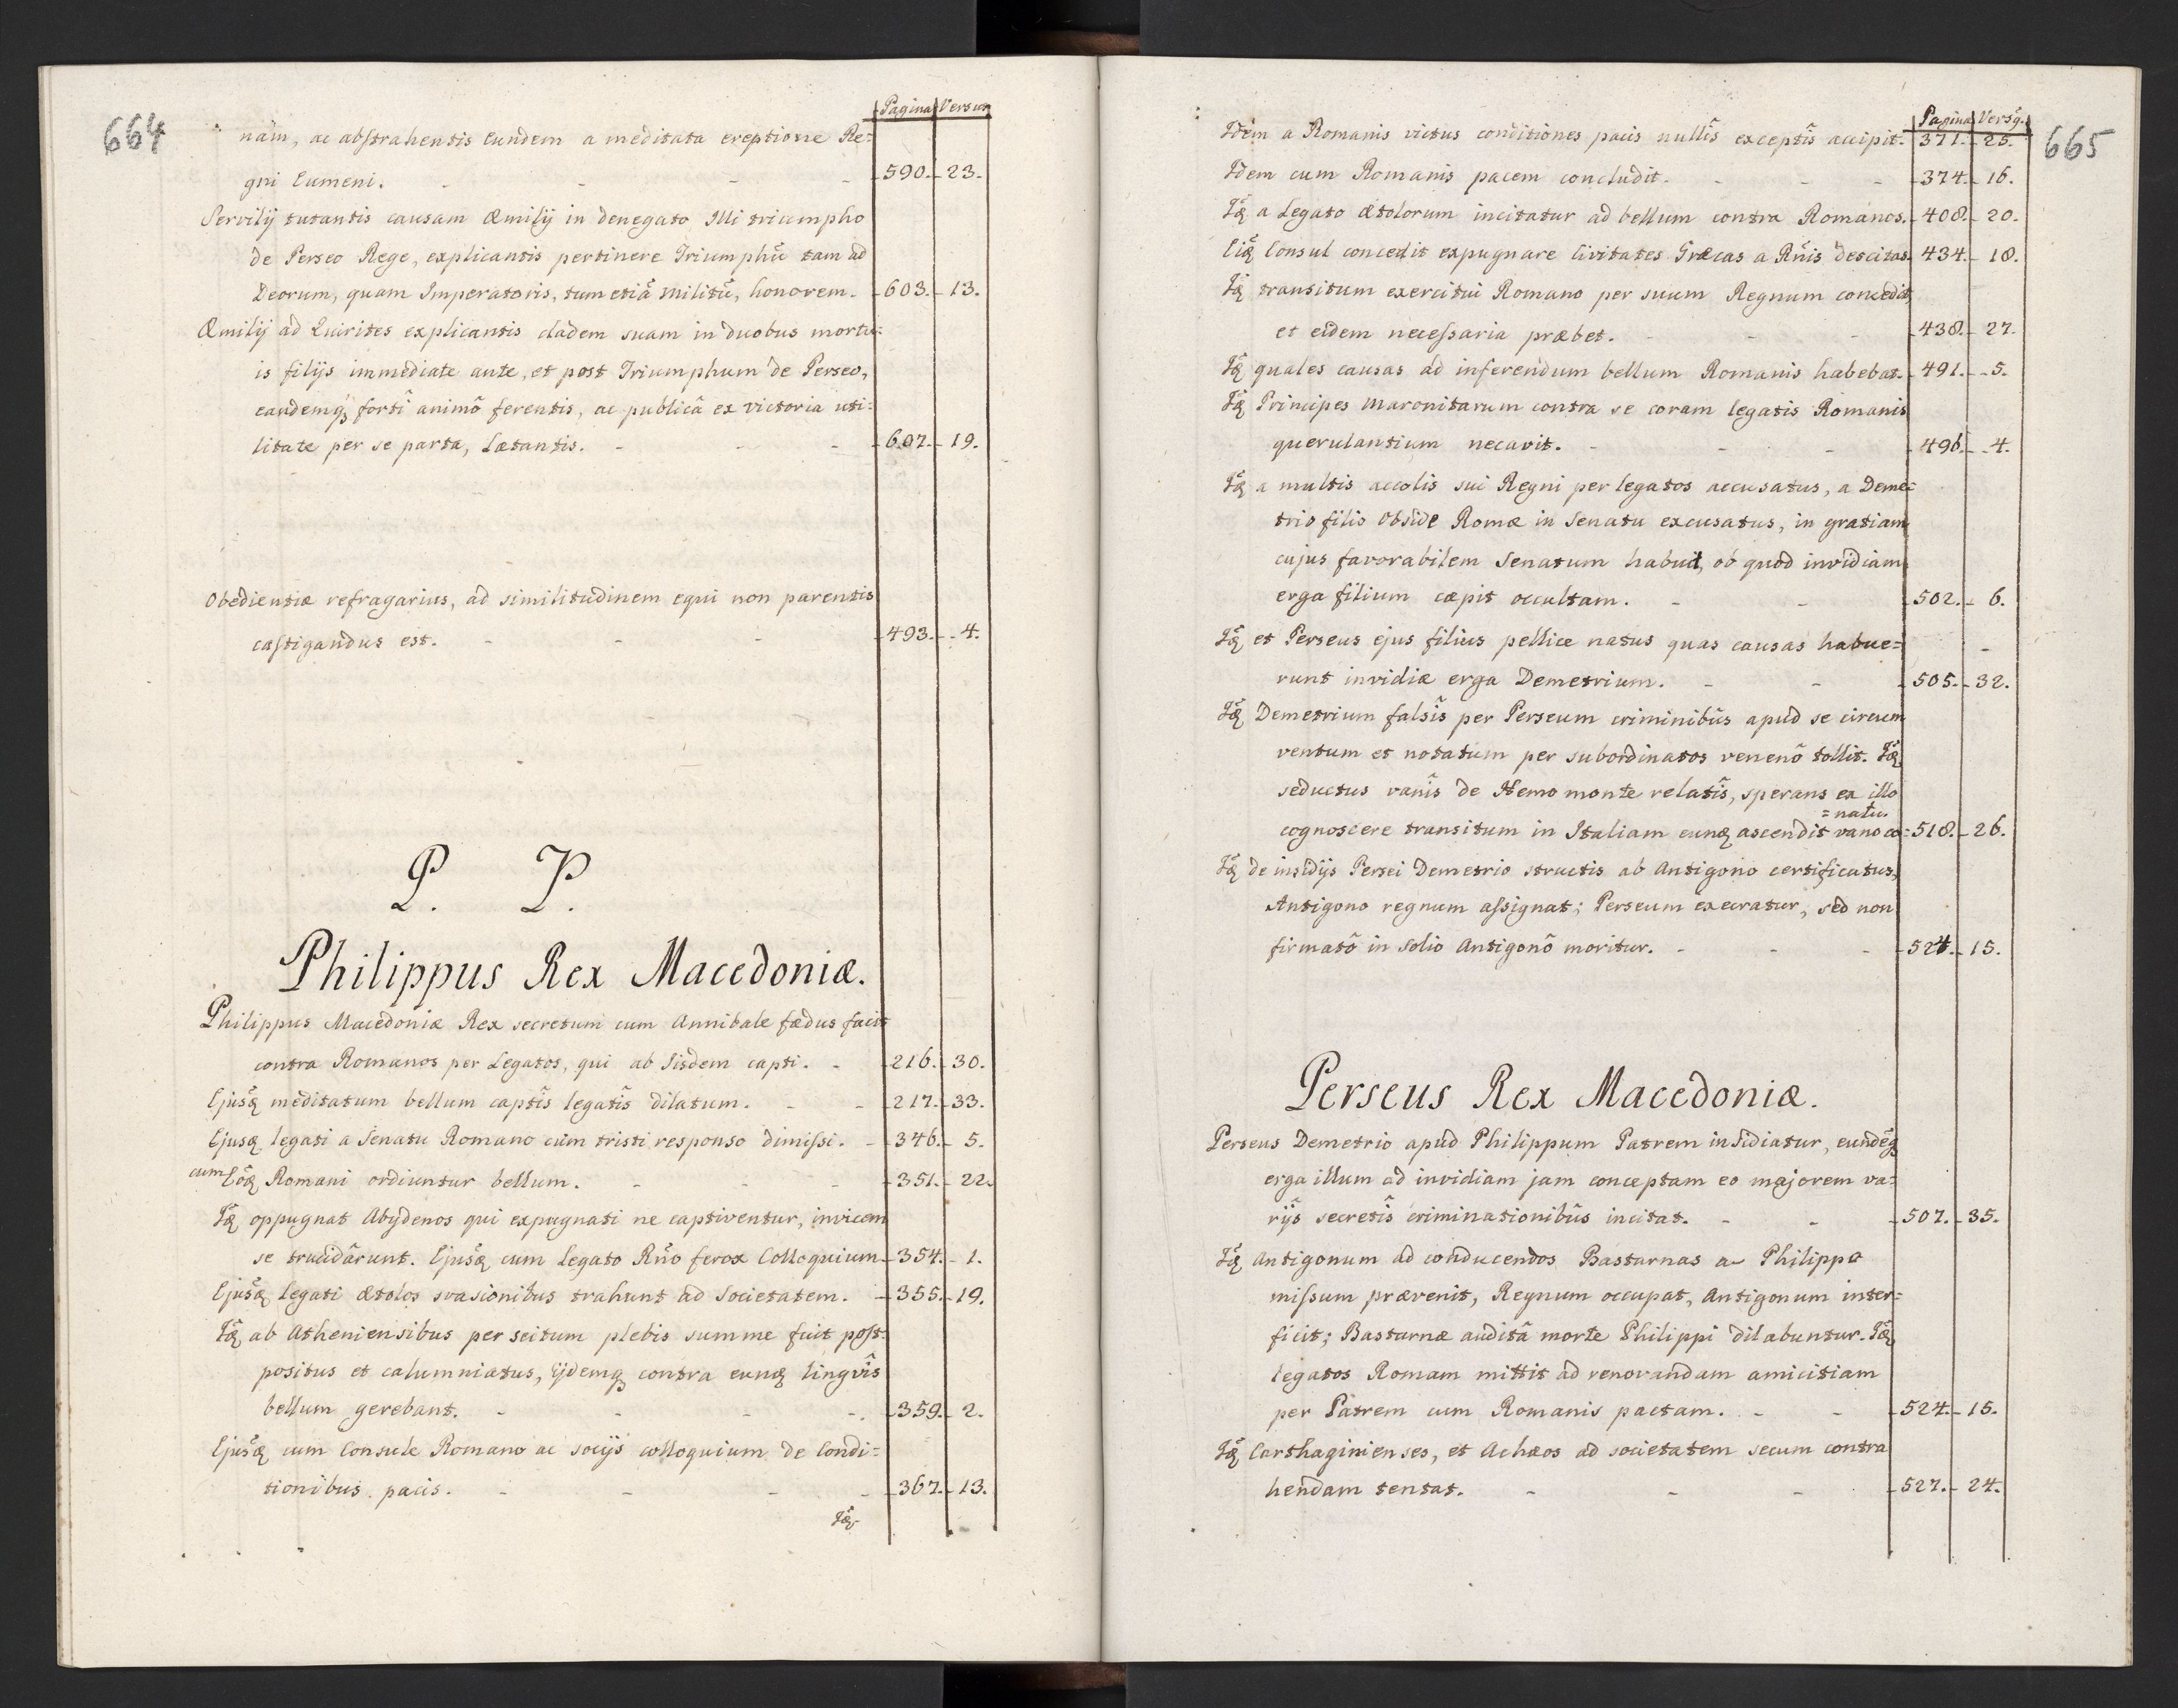 664
Pagina Versus
nam, ac abstrahentis Eundem a meditata ereptione Re=
gni Eumeni. - - - - 590. 23.
Servilij tutantis causam Æmilij in denegato Illi triumpho
de Perseo Rege, explicantis pertinere Triumphũ tam ad
Deorum, quam Imperatoris, tum etiã militũ, honorem. 603. 13.
Æmilij ad Quirites explicantis cladem suam in duobus mortu=
is filijs immediate ante, et post Triumphum de Perseo,
eandemq̃ fortî animô ferentis, ac publicâ ex victoria uti=
litate per se parta, Lætantis. - - - 607. 19.
Obedientiæ refragarius, ad similitudinem equi non parentis
castigandus est. - - - 493. 4.
P. P.
Philippus Rex Macedoniæ.
Philippus Macedoniæ Rex secretum cum Annibale fœdus facit
contra Romanos per Legatos, qui ab Iisdem capti. - 216. 30.
Ejusq̃ meditatum bellum captîs legatîs dilatum. - - 217. 33.
Ejusq̃ legati a Senatu Romano cum tristi responso dimissi. - 346. 5.
cum Eoq̃ Romani ordiuntur bellum. - - - 351. 22.
Iq̃ oppugnat Abydenos qui expugnati ne captiventur, invicem
se trucidârunt. Ejusq̃ cum Legato Rño ferox Colloquium 354. 1.
Ejusq̃ Legati Ætolos svasionibus trahunt ad Societatem. - 355. 19.
Iq̃ ab Atheniensibus per scitum plebis summe fuit post=
positus et calumniatus, ijdemq̃ contra eunq̃ lingvîs
bellum gerebant. - - - - 359. 2.
Ejusq̃ cum Consule Romano ac socijs colloquium de Condi=
tionibus pacis. - - - - 367. 13.
Iq̃
Pagina Versq̃.
665
Idem a Romanis victus conditiones pacis nullîs exceptîs accipit. 371. 25.
Idem cum Romanis pacem concludit. - - - 374. 16.
Iq̃ a Legato Ætolorum incitatur ad bellum contra Romanos. 408. 20.
Eiq̃ Consul concedit expugnare Civitates Græcas a Rñis descitas. 434. 18.
Iq̃ transitum exercitui Romano per suum Regnum concedit,
et eidem necessaria præbet. - - - 438. 27.
Iq̃ quales causas ad inferendum bellum Romanis habebat. 491. 5.
Iq̃ Principes Maronitarum contra se coram legatis Romanis
querulantium necavit. - - - 496. 4.
Iq̃ a multis accolis sui Regni per legatos accusatus, a Deme=
trio filio Obside Romæ in Senatu excusatus, in gratiam
cujus favorabilem Senatum habuit, ob quod invidiam
erga filium cæpit occultam. - - 502. 6.
Iq̃ et Perseus ejus filius pellice natus quas causas habue=
runt invidiæ erga Demetrium. - - 505. 32.
Iq̃ Demetrium falsîs per Perseum criminibûs apud se circum
ventum et notatum per subordinatos venenô tollit. Iq̃
seductus vanîs de Hemo monte relatîs, sperans ex illo
= natu.
cognoscere transitum in Italiam eunq̃ ascendit vano co= 518. 26.
Iq̃ de insidijs Persei Demetrio structis ab Antigono certificatus,
Antigono regnum assignat; Perseum execratur, sed non
firmatô in solio Antigonô moritur. - - - 524. 15.
Perseus Rex Macedoniæ.
Perseus Demetrio apud Philippum Patrem insidiatur, eundẽq̃
erga illum ad invidiam jam conceptam eo majorem va=
rijs secretîs criminationibûs incitat. - - 507. 35.
Iq̃ Antigonum ad conducendos Bastarnas a Philippo
missum prævenit, Regnum occupat, Antigonum inter=
ficit; Bastarnæ auditâ morte Philippi dilabuntur. Iq̃
legatos Romam mittit ad renovandam amicitiam
per Patrem cum Romanis pactam. - - 524. 15.
Iq̃ Carthaginienses, et Achæos ad societatem secum contra
hendam tentat. - - - 527. 24.